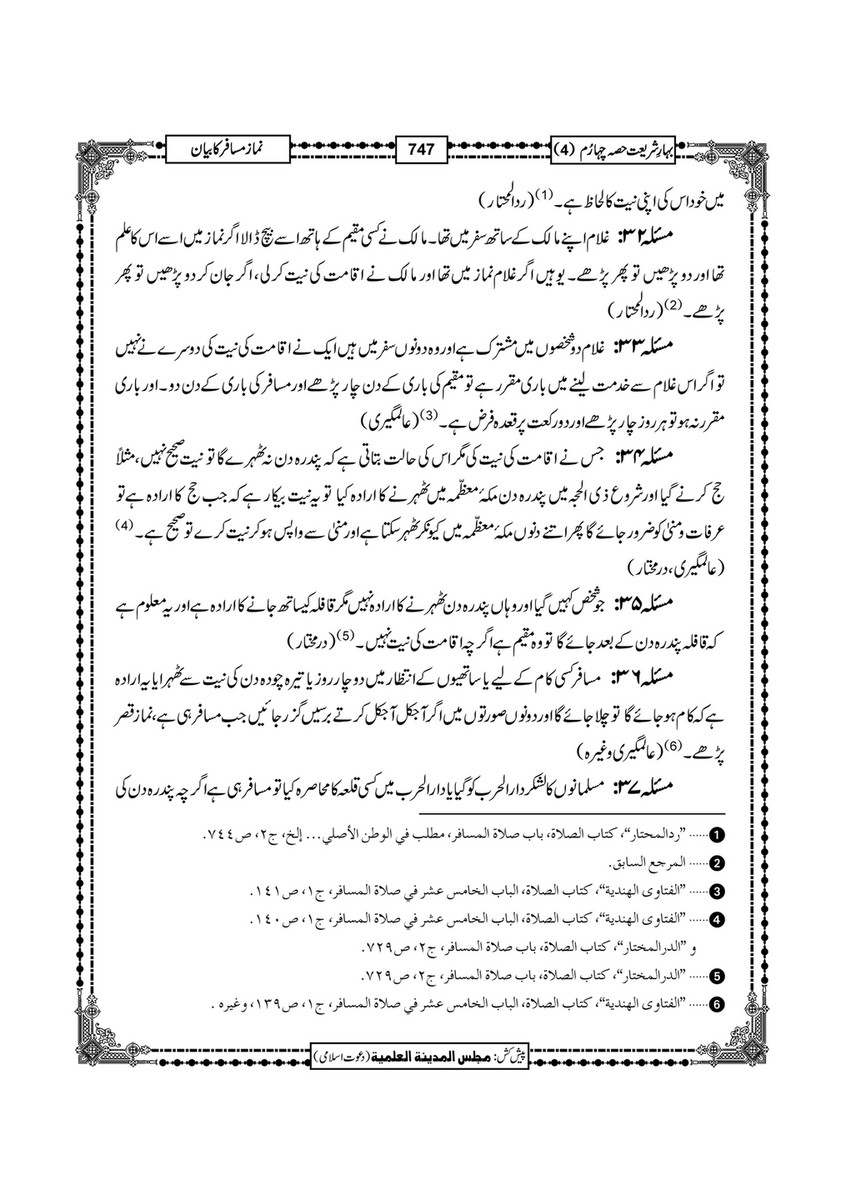 بہارِ شریعت حصہ چہارم (4)
747
نماز مسافر کا بیان
میں خود اس کی اپنی نیت کا لحاظ ہے۔(1) (ردالمحتار)
مسئلہ ۳۲: غلام اپنے مالک کے ساتھ سفر میں تھا۔ مالک نے کسی مقیم کے ہاتھ اسے بیچ ڈالا اگر نماز میں اسے اس کا علم
تھا اور دو پڑھیں تو پھر پڑھے۔ یوہیں اگر غلام نماز میں تھا اور مالک نے اقامت کی نیت کر لی، اگر جان کر دو پڑھیں تو پھر
پڑھے۔(2) (ردالمحتار)
مسئلہ ۳۳: غلام دو شخصوں میں مشترک ہے اور وہ دونوں سفر میں ہیں ایک نے اقامت کی نیت کی دوسرے نے نہیں
تو اگر اس غلام سے خدمت لینے میں باری مقرر ہے تو مقیم کی باری کے دن چار پڑھے اور مسافر کی باری کے دن دو۔ اور باری
مقرر نہ ہو تو ہر روز چار پڑھے اور دو رکعت پر قعدہ فرض ہے۔(3) (عالمگیری)
مسئلہ ۳۴: جس نے اقامت کی نیت کی مگر اس کی حالت بتاتی ہے کہ پندرہ دن نہ ٹھہرے گا تو نیت صحیح نہیں، مثلاً
حج کرنے گیا اور شروع ذی الحجہ میں پندرہ دن مکۂ معظّمہ میں ٹھہرنے کا ارادہ کیا تو یہ نیت بیکار ہے کہ جب حج کا ارادہ ہے تو
عرفات و منیٰ کو ضرور جائے گا پھر اتنے دنوں مکۂ معظّمہ میں کیونکر ٹھہر سکتا ہے اور منیٰ سے واپس ہو کر نیت کرے تو صحیح ہے۔(4)
(عالمگیری، درمختار)
مسئلہ ۳۵: جو شخص کہیں گیا اور وہاں پندرہ دن ٹھہرنے کا ارادہ نہیں مگر قافلہ کیساتھ جانے کا ارادہ ہے اور یہ معلوم ہے
کہ قافلہ پندرہ دن کے بعد جائے گا تو وہ مقیم ہے اگرچہ اقامت کی نیت نہیں۔(5) (درمختار)
مسئلہ ۳۶: مسافر کسی کام کے لیے یا ساتھیوں کے انتظار میں دو چار روز یا تیرہ چودہ دن کی نیت سے ٹھہرا یا یہ ارادہ
ہے کہ کام ہو جائے گا تو چلا جائے گا اور دونوں صورتوں میں اگر آجکل آجکل کرتے برسیں گزر جائیں جب مسافر ہی ہے، نماز قصر
پڑھے۔(6) (عالمگیری وغیرہ)
مسئلہ ۳۷: مسلمانوں کا لشکر دارالحرب کو گیا یا دارالحرب میں کسی قلعہ کا محاصرہ کیا تو مسافر ہی ہے اگرچہ پندرہ دن کی
1 ...... ”ردالمحتار“، کتاب الصلاة، باب صلاة المسافر، مطلب في الوطن الأصلي... إلخ، ج۲، ص۷٤٤.
2 ...... المرجع السابق.
3 ...... ”الفتاوی الهندية“، کتاب الصلاة، الباب الخامس عشر في صلاة المسافر، ج۱، ص۱٤۱.
4 ...... ”الفتاوی الهندية“، کتاب الصلاة، الباب الخامس عشر في صلاة المسافر، ج۱، ص۱٤۰.
و ”الدرالمختار“، کتاب الصلاة، باب صلاة المسافر، ج۲، ص۷۲۹.
5 ...... ”الدرالمختار“، کتاب الصلاة، باب صلاة المسافر، ج۲، ص۷۲۹.
6 ...... ”الفتاوی الهندية“، کتاب الصلاة، الباب الخامس عشر في صلاة المسافر، ج۱، ص۱۳۹، وغيره .
پیش کش: مجلس المدینة العلمیة (دعوت اسلامی)